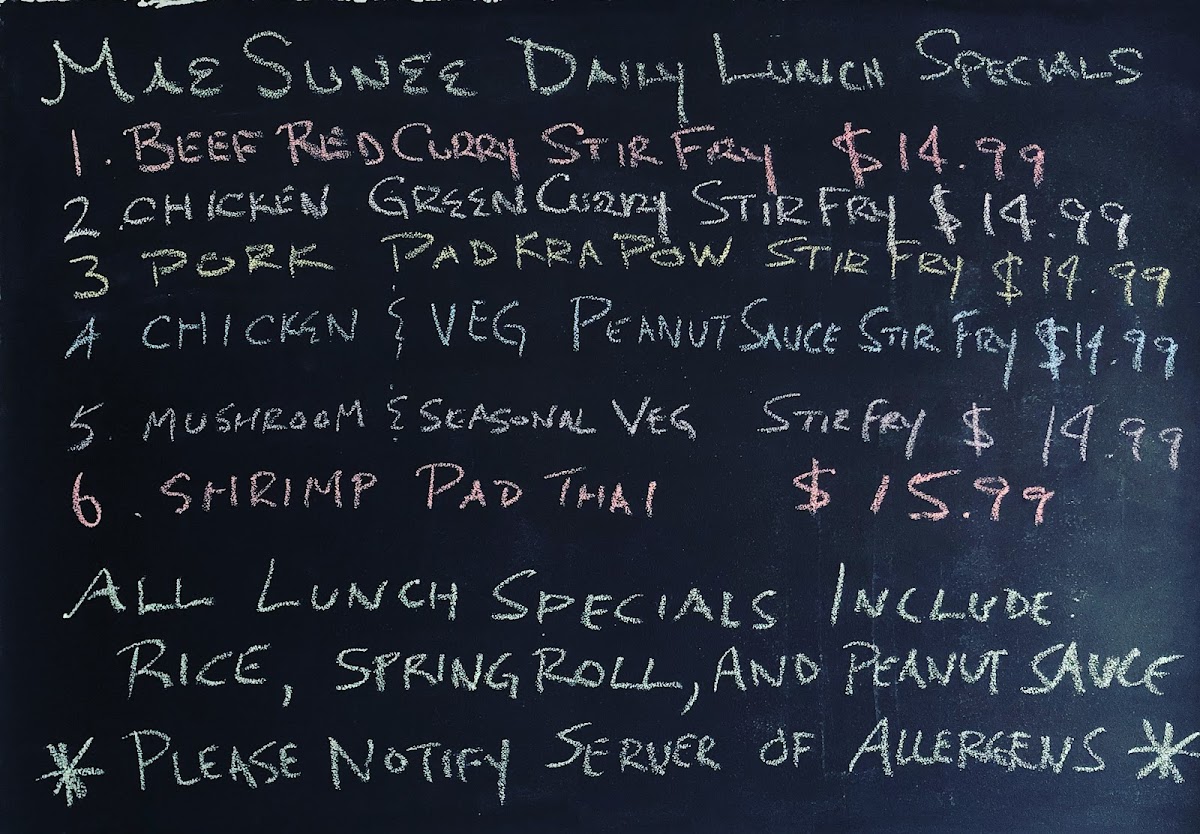 MAE SUNEE DAILY LUNCH SPECIALS
1. BEEF RED CURRY STIR FRY $14.99
2. CHICKEN GREEN CURRY STIR FRY $14.99
3 PORK PAD KRA POW STIR FRY $14.99
4 CHICKEN & VEG PEANUT SAUCE STIR FRY $14.99
5. MUSHROOM & SEASONAL VEG STIR FRY $14.99
6. SHRIMP PAD THAI $15.99
ALL LUNCH SPECIALS INCLUDE:
RICE, SPRING ROLL, AND PEANUT SAUCE
* PLEASE NOTIFY SERVER OF ALLERGENS *